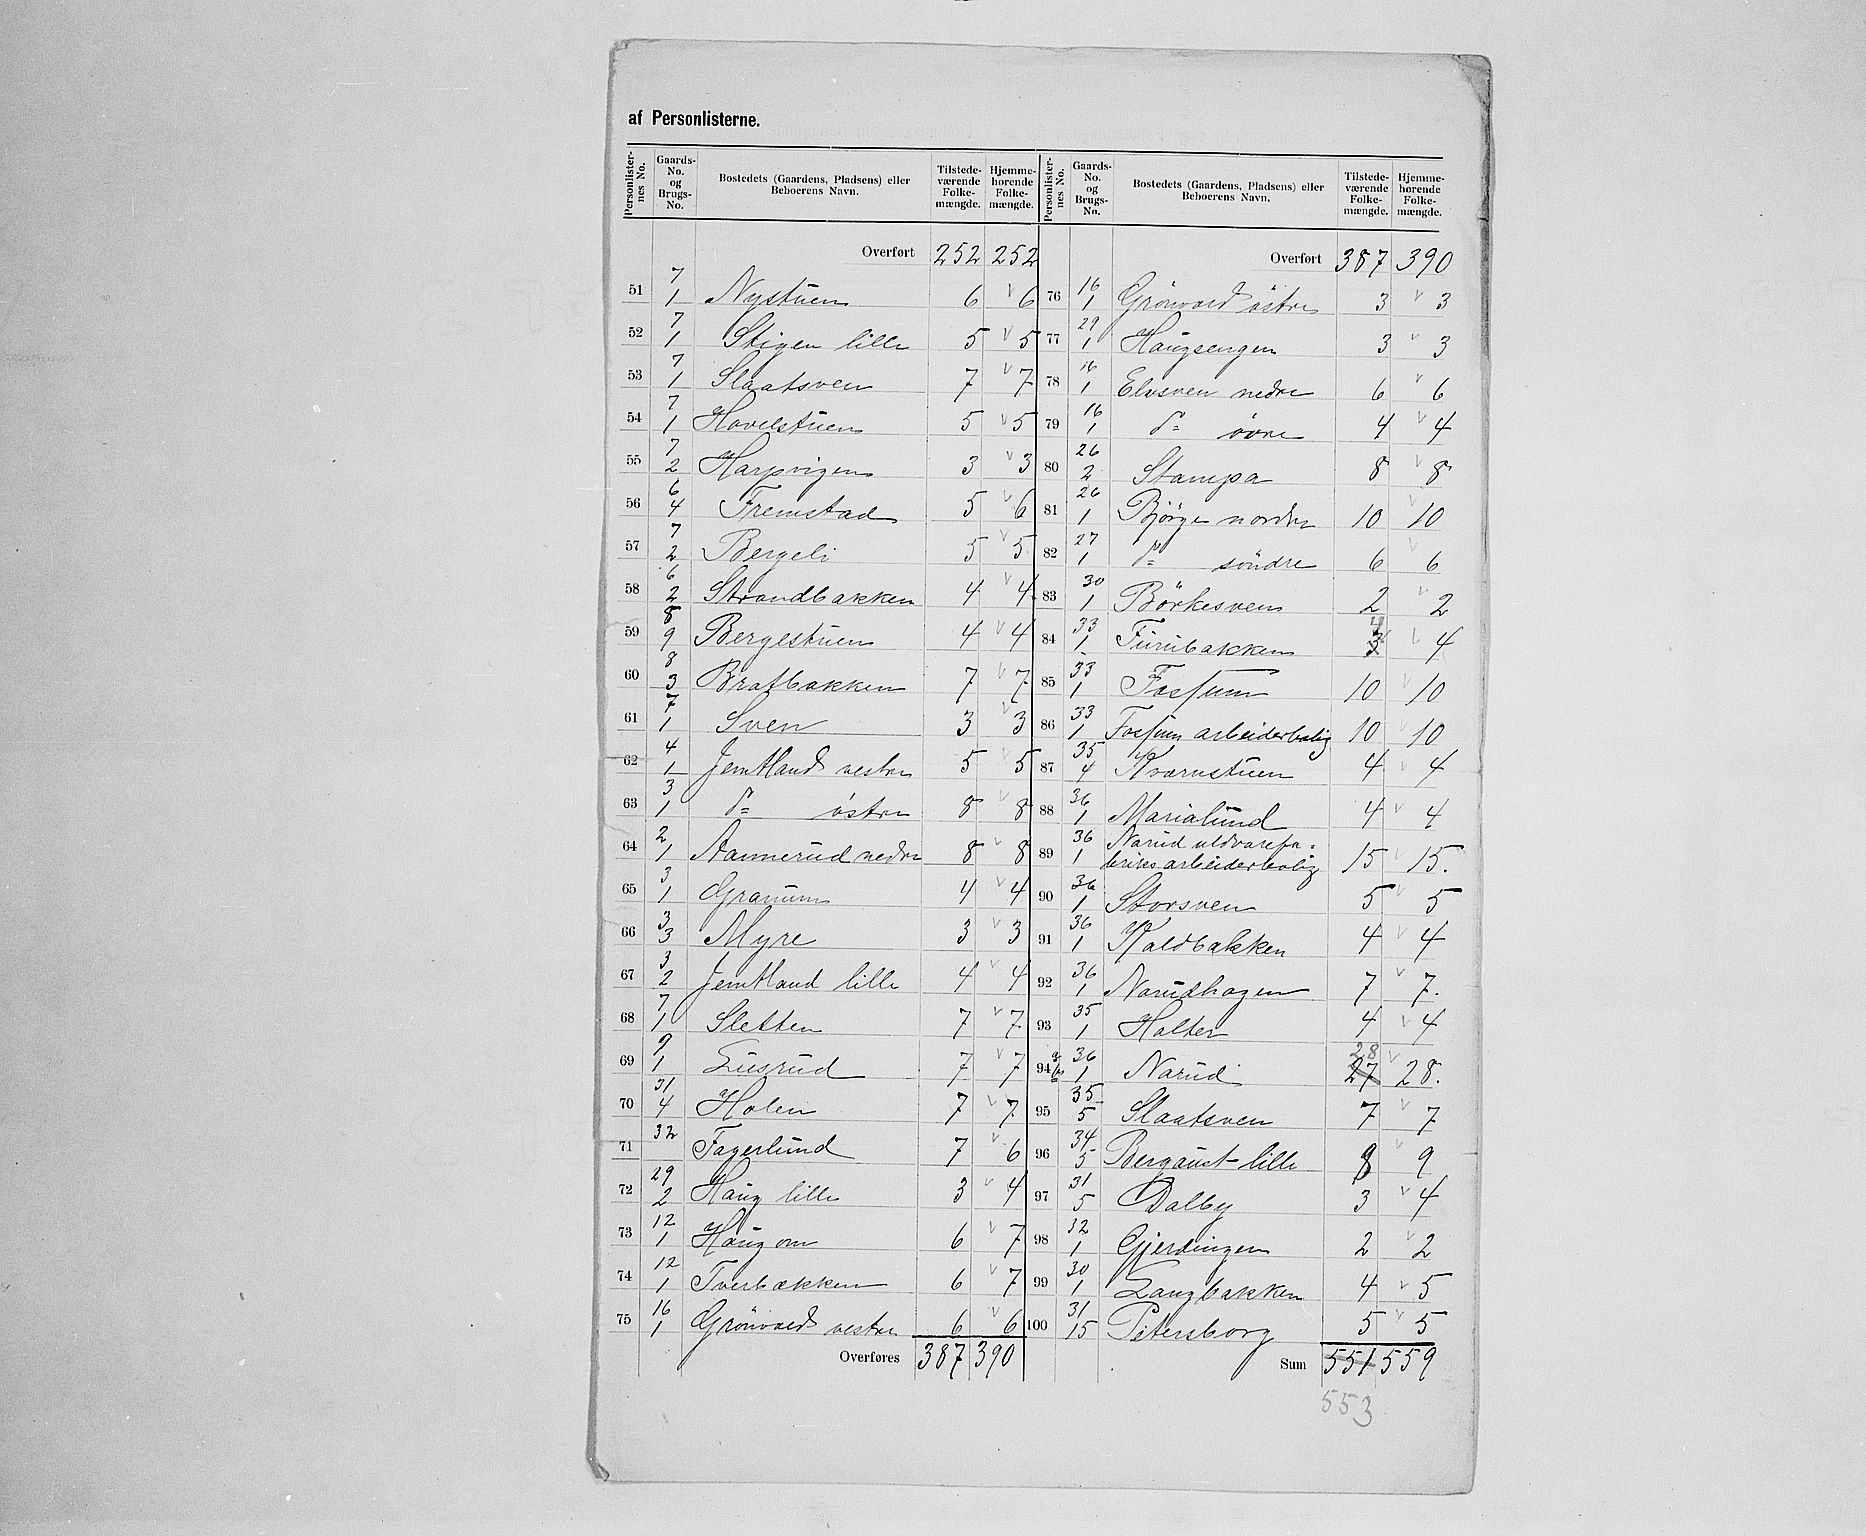 af Personlisterne.
Personlister-nes No. | Gaards-No. og Brugs-No. | Bostedets (Gaardens, Pladsens) eller Beboerens Navn. | Tilstede-værende Folke-mængde. | Hjemme-hørende Folke-mængde.
Overført 252 252
51 7/1 Nystuen 6 v 6
52 7/1 Stigen lille 5 v 5
53 7/1 Slaatsven 7 v 7
54 7/1 Hovelstuen 5 v 5
55 7/2 Harpvigen 3 v 3
56 6/4 Fremstad 5 v 6
57 7/2 Bergeli 5 v 5
58 6/2 Strandbakken 4 v 4
59 8/9 Bergestuen 4 v 4
60 8/3 Bratbakken 7 v 7
61 7/1 Sven 3 v 3
62 4/1 Jemtland vestre 5 v 5
63 3/1 do østre 8 v 8
64 2/1 Aannerud nedre 8 v 8
65 3/1 Granum 4 v 4
66 3/3 Myre 3 v 3
67 3/2 Jemtland lille 4 v 4
68 7/1 Sletten 7 v 7
69 9/1 Lusrud 7 v 7
70 31/4 Holen 7 v 7
71 32 Fagerlund 7 v 6
72 29/2 Haug lille 3 v 4
73 12/1 Haugom 6 v 7
74 12/1 Tverbakken 6 v 7
75 16/1 Grönvold vestre 6 v 6
Overføres 387 390
Personlister-nes No. | Gaards-No. og Brugs-No. | Bostedets (Gaardens, Pladsens) eller Beboerens Navn. | Tilstede-værende Folke-mængde. | Hjemme-hørende Folke-mængde.
Overført 387 390
76 16/1 Grönvold östre 3 v 3
77 29/1 Haugsengen 3 v 3
78 16/1 Elvsven nedre 6 v 6
79 16/1 do övre 4 v 4
80 26/2 Stampa 8 v 8
81 26/1 Bjørge nordre 10 v 10
82 27/1 do söndre 6 v 6
83 30/1 Börkesven 2 v 2
84 33/1 Furubakken 3 4 v 4
85 33/1 Fossum 10 v 10
86 33/1 Fossum arbeiderbolig 10 v 10
87 35/4 Kvarnstuen 4 v 4
88 36/1 Marialund 4 v 4
89 36/1 Narud uldvarefa-
briks arbeiderbolig 15 v 15.
90 36/1 Storsven 5 v 5
91 36/1 Kaldbakken 4 v 4
92 36/1 Narudhagen 7 v 7.
93 35/1 Holter 4 v 4
94 a b 36/1 Narud 27 28 v 28.
95 35/5 Slaatsven 7 v 7
96 34/5 Bergaust lille 9 v 9
97 31/5 Dalby 3 v 4
98 32/1 Gjerdingen 2 v 2
99 30/1 Langbakken 4 v 5
100 31/15 Petersborg 5 v 5
Sum 551 559
553